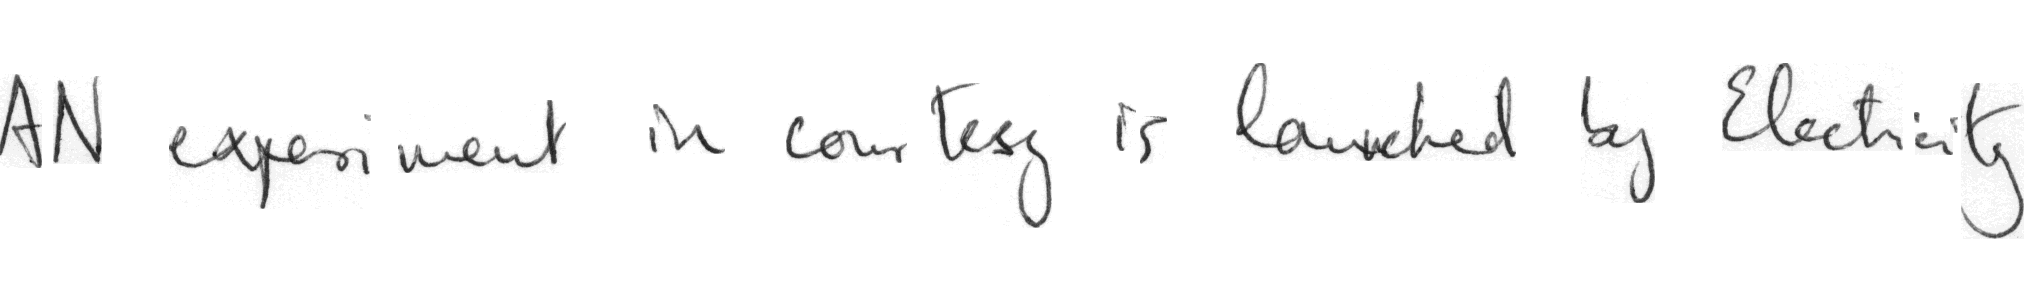 AN experiment in courtesy is launched by Electricity